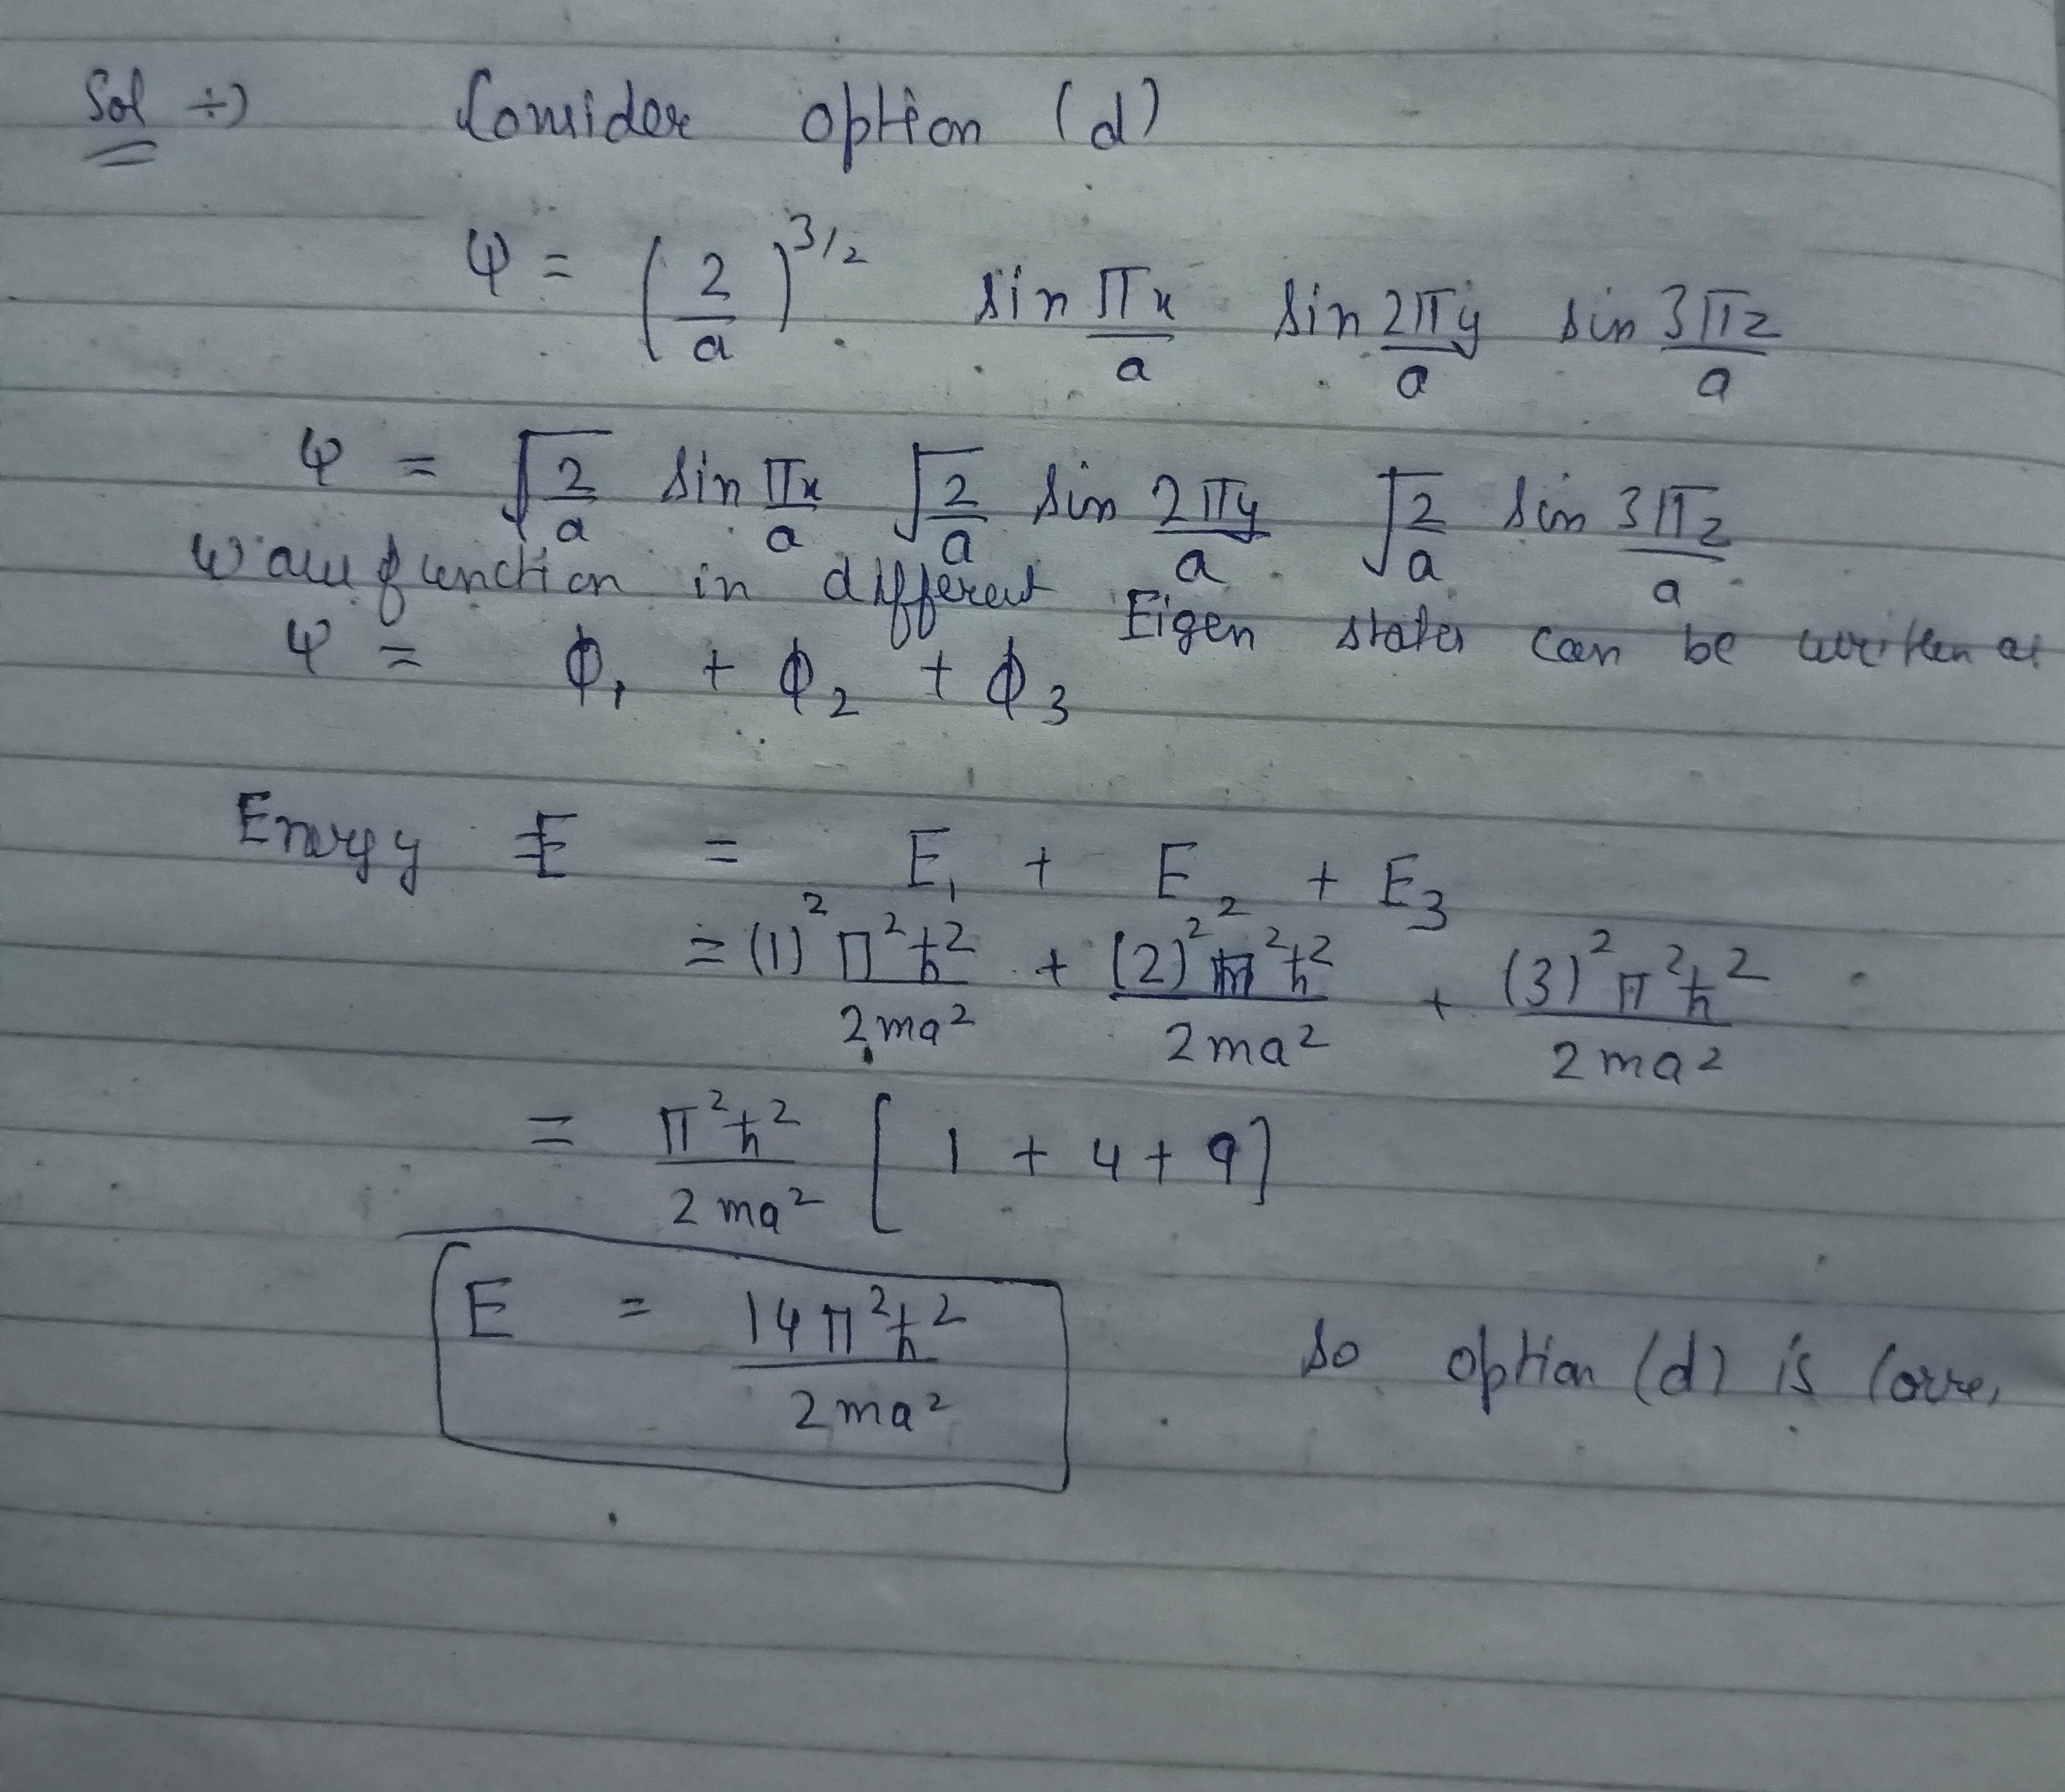 Sol ÷) Consider option (d)
ψ = (2/a)^3/2 sin πx/a sin 2πy/a sin 3πz/a
ψ = √2/a sin πx/a √2/a sin 2πy/a √2/a sin 3πz/a
Wave function in different Eigen states can be written as
ψ = ϕ₁ + ϕ₂ + ϕ₃
Energy E = E₁ + E₂ + E₃
= (1)² π²ħ²/2ma² + (2)² π²ħ²/2ma² + (3)² π²ħ²/2ma²
= π²ħ²/2ma² [1 + 4 + 9]
E = 14π²ħ²/2ma² so option (d) is corre